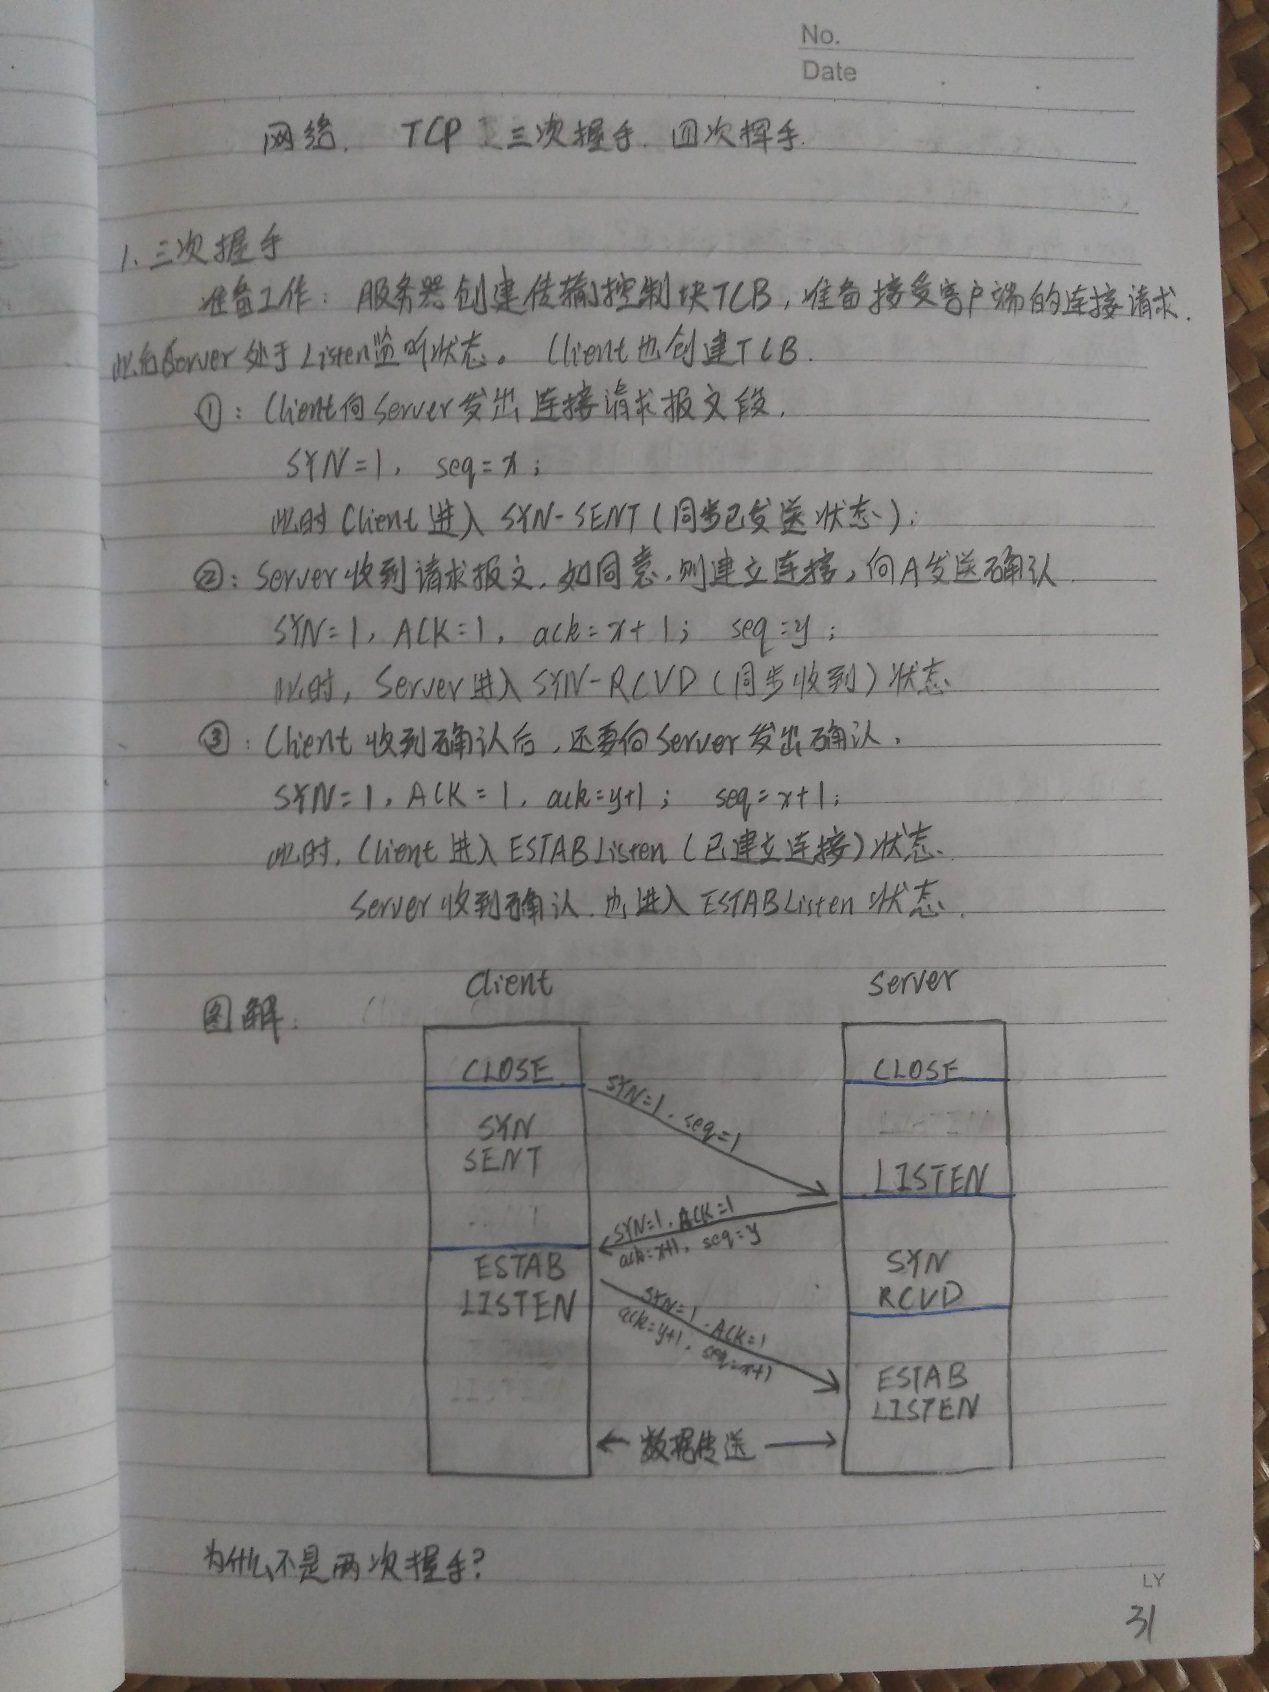 No.
Date
网络. TCP 三次握手. 四次挥手.
1. 三次握手
准备工作: 服务器创建传输控制块TCB, 准备接受客户端的连接请求.
此后Server处于Listen监听状态。 Client也创建TCB.
①: Client向Server发出连接请求报文段.
SYN=1, seq=x;
此时Client进入SYN-SENT(同步已发送状态);
②: Server收到请求报文, 如同意, 则建立连接, 向A发送确认
SYN=1, ACK=1, ack=x+1; seq=y;
此时, Server进入SYN-RCVD(同步收到)状态
③: Client收到确认后, 还要向Server发出确认,
SYN=1, ACK=1, ack=y+1; seq=x+1;
此时, Client进入ESTABListen(已建立连接)状态.
Server收到确认, 也进入ESTABListen状态.
图解:
Client
Server
CLOSE
CLOSE
SYN=1, seq=1
SYN
SENT
LISTEN
SYN=1, ACK=1
ack=x+1, seq=y
ESTAB
LISTEN
SYN
RCVD
SYN=1, ACK=1
ack=y+1, seq=x+1
ESTAB
LISTEN
← 数据传送 →
为什么不是两次握手?
LY
31